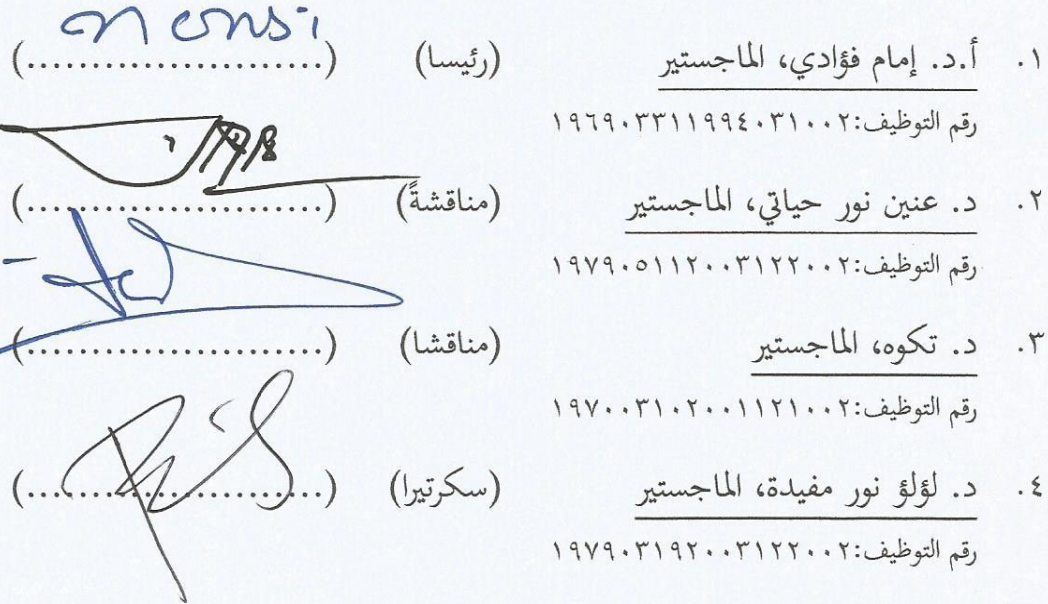 ١. أ.د. إمام فؤادي، الماجستير (رئيسا) (.......................)
رقم التوظيف:١٩٦٩٠٣٣١١٩٩٤٠٣١٠٠٢
٢. د. عنين نور حياتي، الماجستير (مناقشةً) (.......................)
رقم التوظيف:١٩٧٩٠٥١١٢٠٠٣١٢٢٠٠٢
٣. د. تكوه، الماجستير (مناقشا) (.......................)
رقم التوظيف:١٩٧٠٠٣١٠٢٠٠١١٢١٠٠٢
٤. د. لؤلؤ نور مفيدة، الماجستير (سكرتيرا) (.......................)
رقم التوظيف:١٩٧٩٠٣١٩٢٠٠٣١٢٢٠٠٢